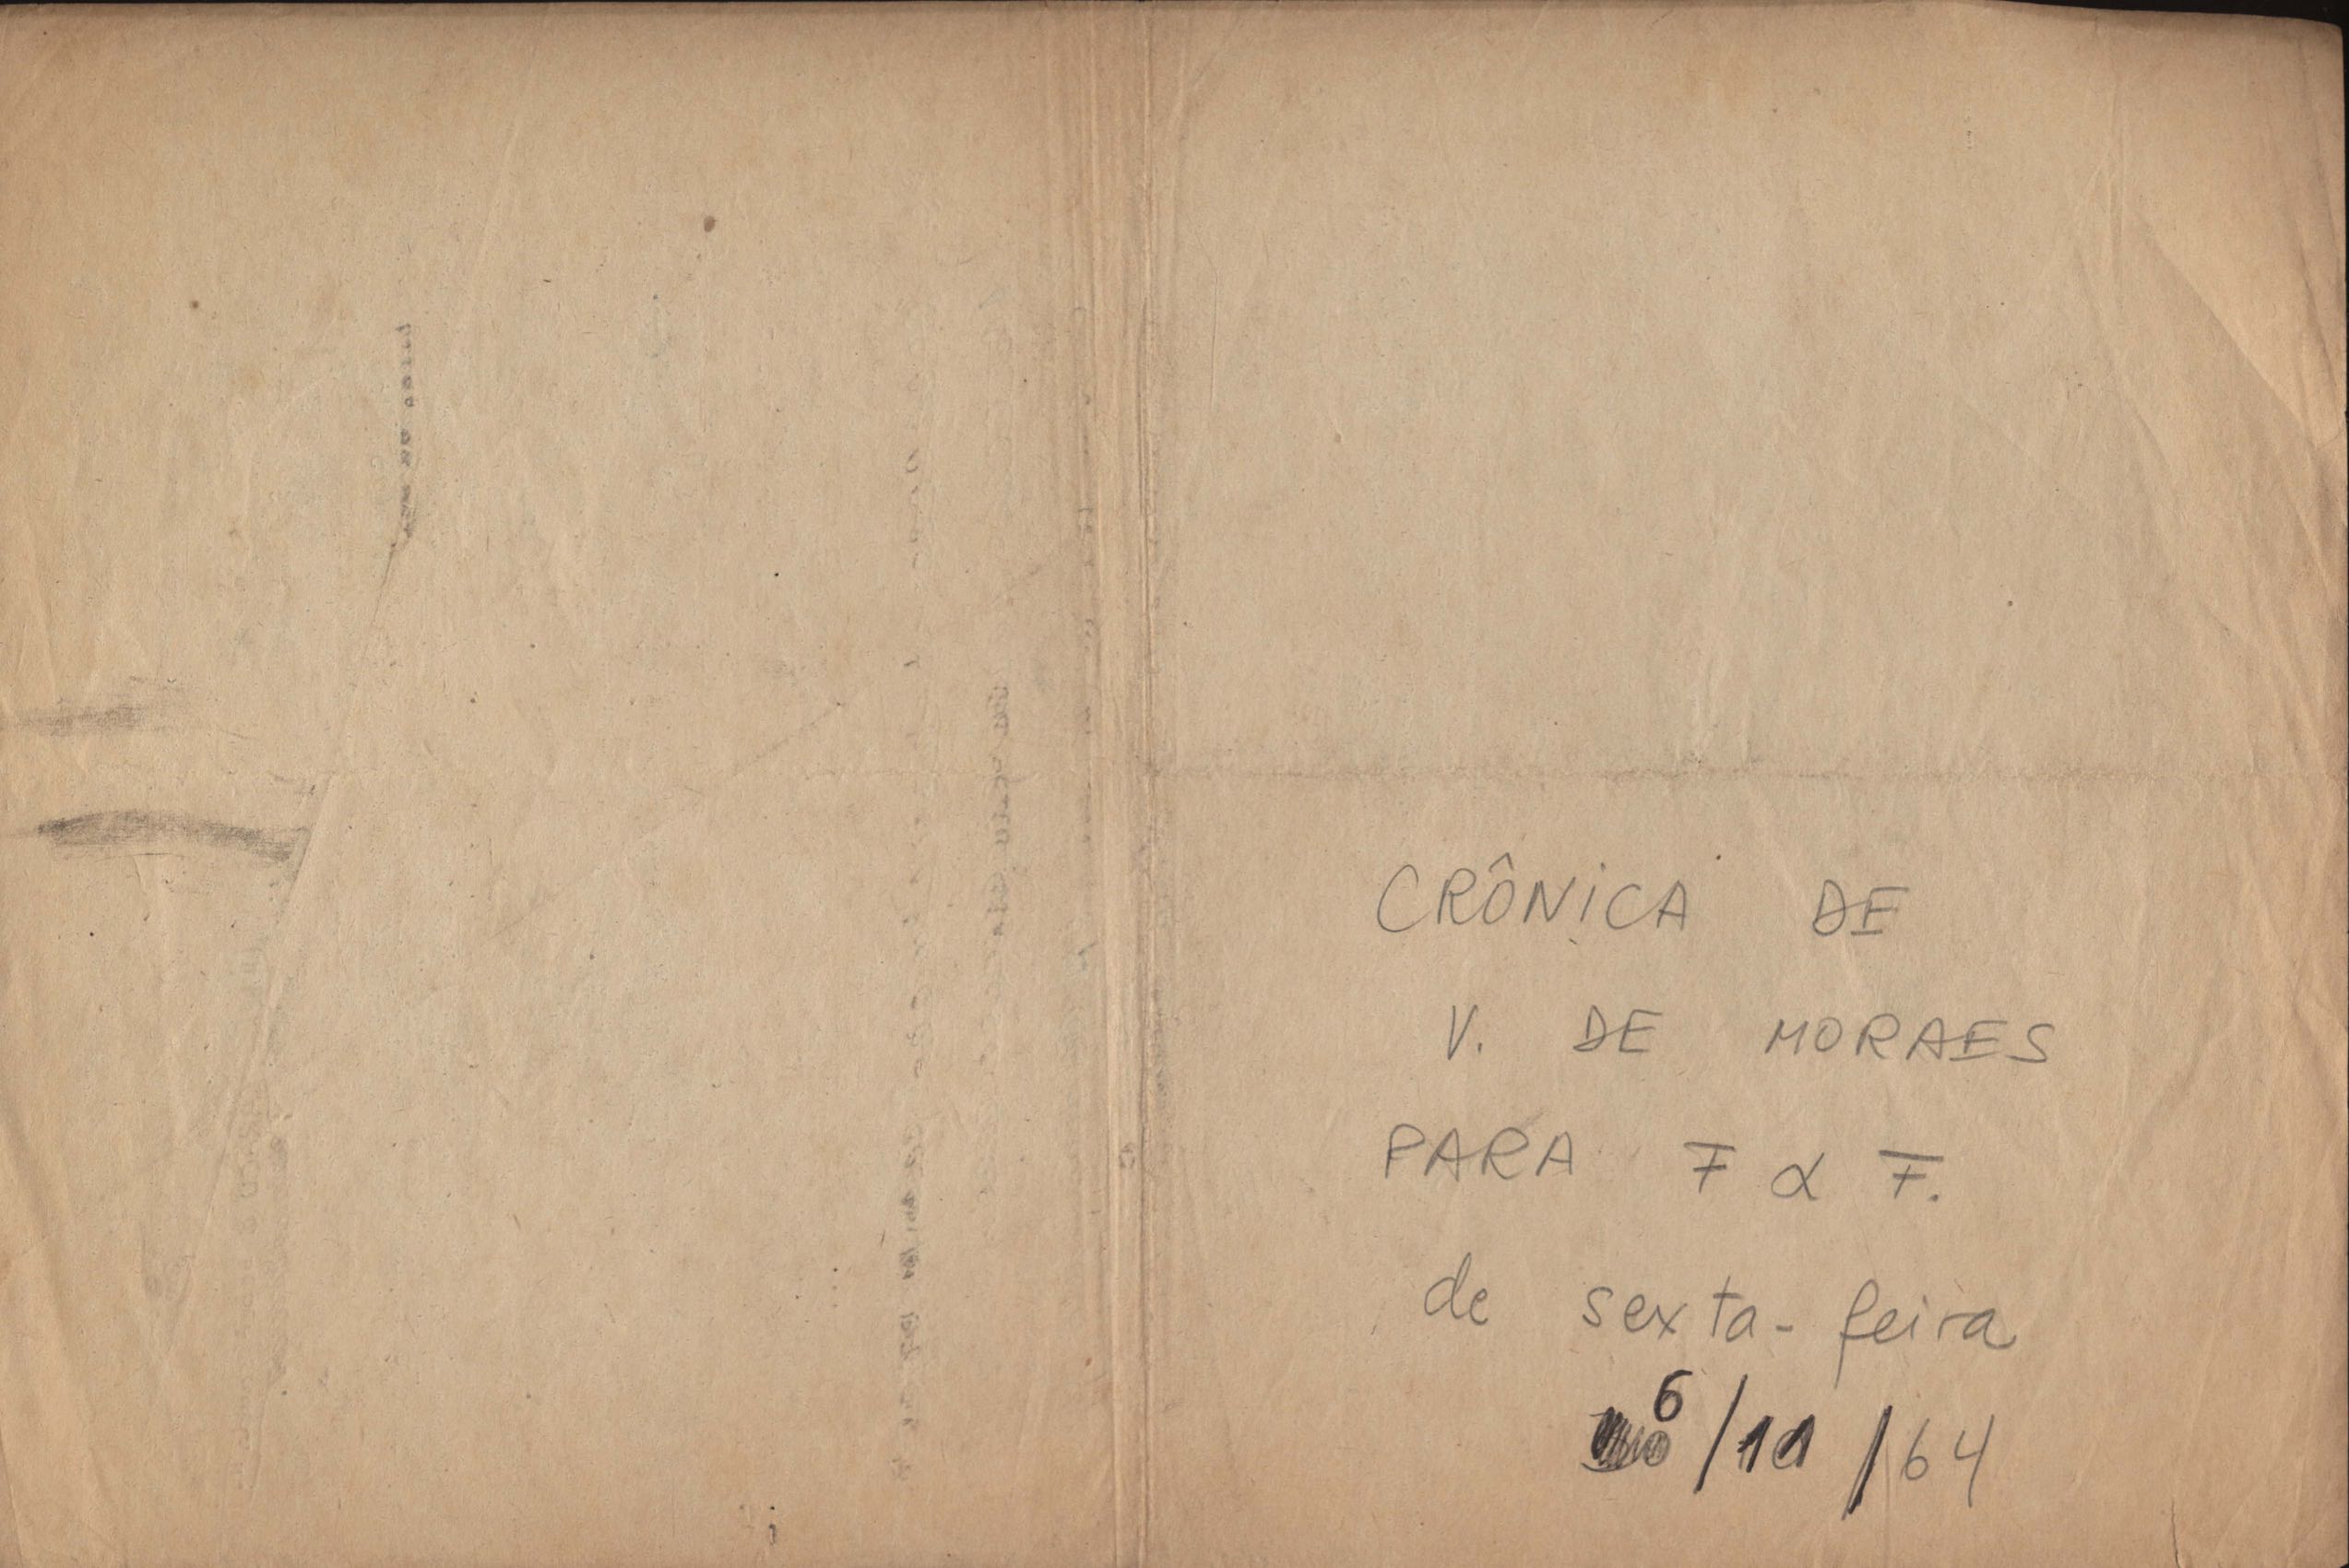 CRÔNICA DE
V. DE MORAES
PARA F & F.
de sexta-feira
6/11/64